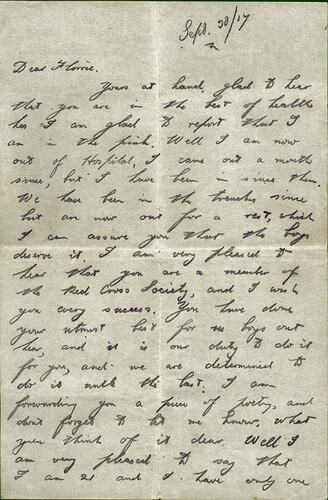 Sept. 28/17
Dear Florrie.
Yours at hand, glad to hear
that you are in the best of health
has I am glad to report that I
am in the pink. Well I am now
out of Hospital, I came out a month
since, but I have been in since then.
We have been in the trenches since
but are now out for a rest, which
I can assure you that the boys
deserve it. I am very pleased to
hear that you are a member of
the Red Cross Society, and I wish
you every success. You have done
your utmost best for us boys out
hear, and it is our duty to do it
for you, and we are determined to
do it until the last. I am
forwarding you a piece of poetry, and
dont forget to let me know, what
you think of it dear. Well I
am very pleased to say that
I am 21 and I have only one